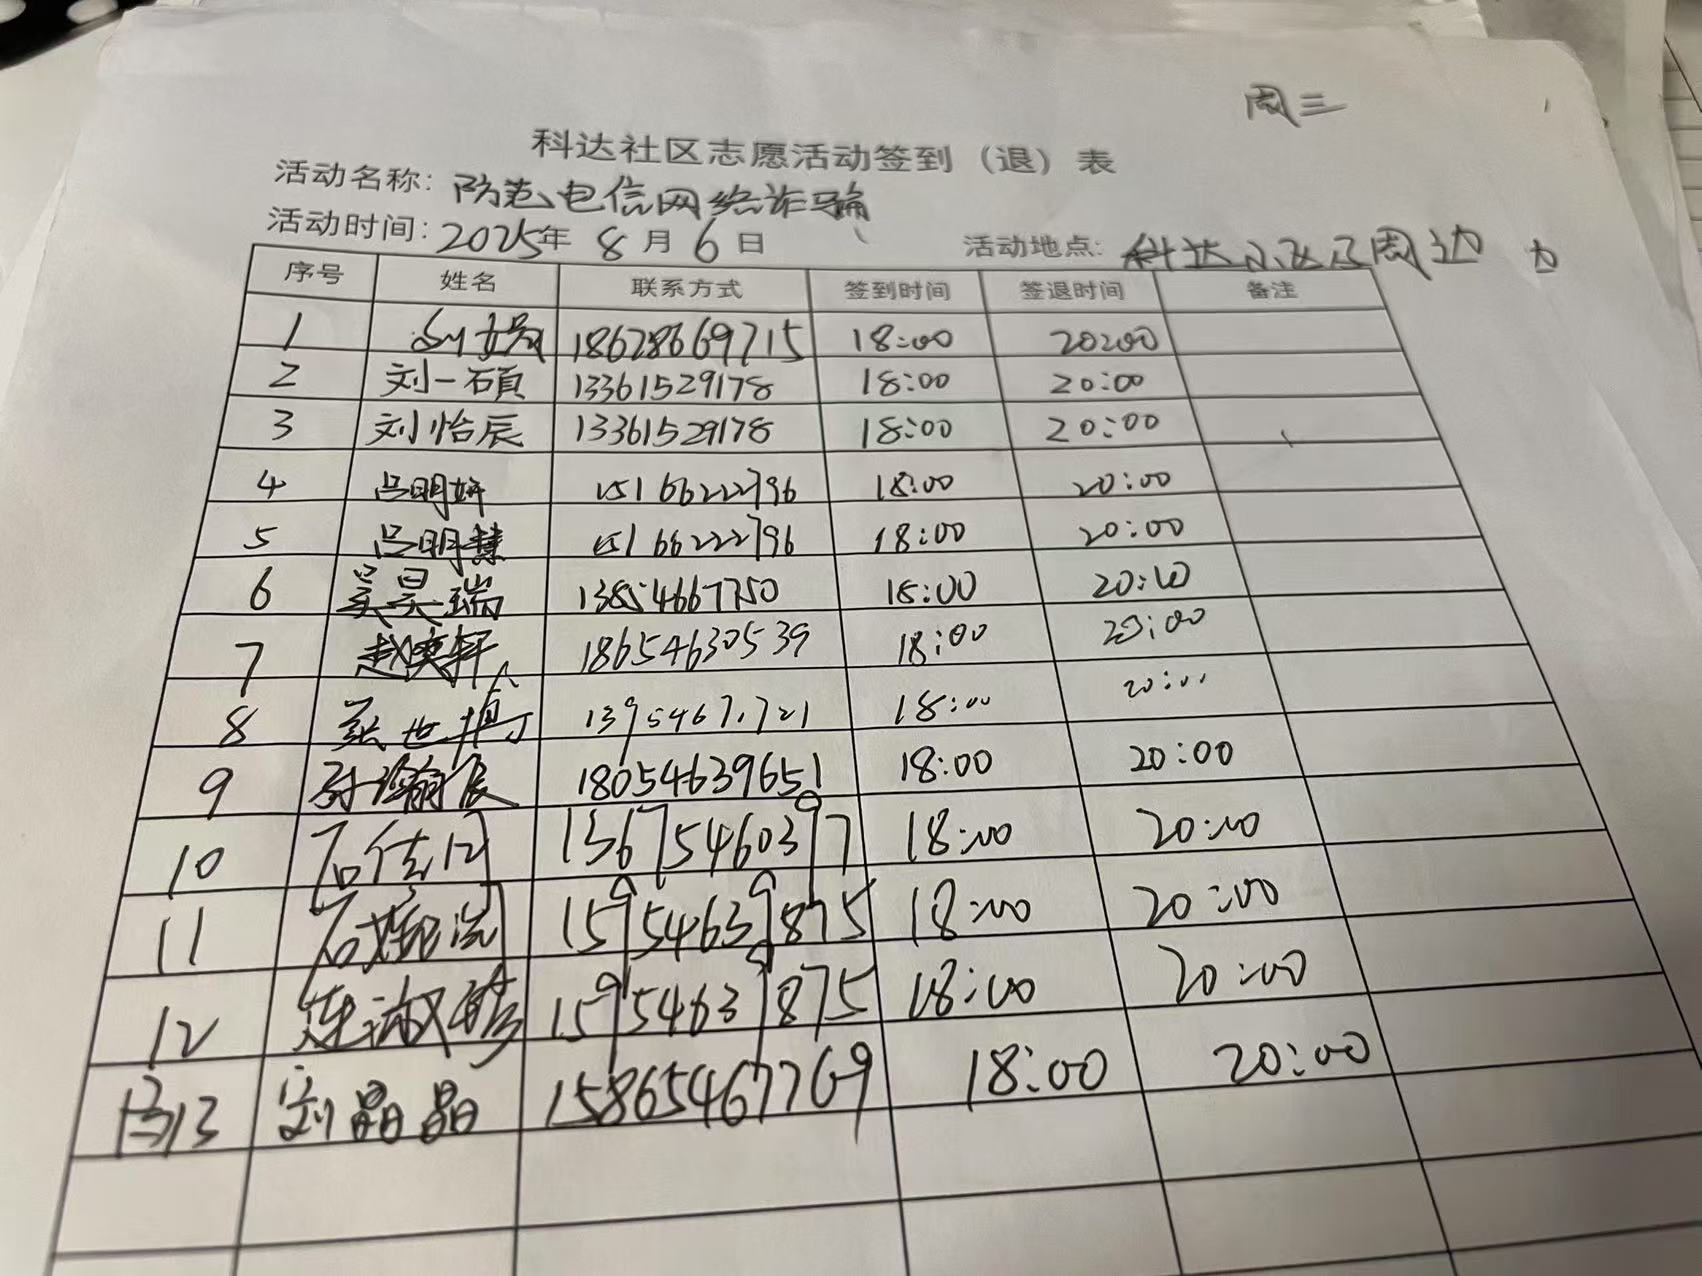 周三
科达社区志愿活动签到（退）表
活动名称：防范电信网络诈骗
活动时间：2025年 8 月 6 日 活动地点：科达小区及周边
序号 姓名 联系方式 签到时间 签退时间 备注
1 18628669715 18:00 20:00
2 刘一硕 13361529178 18:00 20:00
3 刘怡辰 13361529178 18:00 20:00
4 吕明妍 15166222796 18:00 20:00
5 吕明慧 15166222796 18:00 20:00
6 吴昊瑞 13854667750 18:00 20:00
7 赵奕轩 18654630539 18:00 20:00
8 张世博 18:00 20:00
9 18054639651 18:00 20:00
10 13675460397 18:00 20:00
11 15954639875 18:00 20:00
12 15954639875 18:00 20:00
13 刘晶晶 15865467769 18:00 20:00